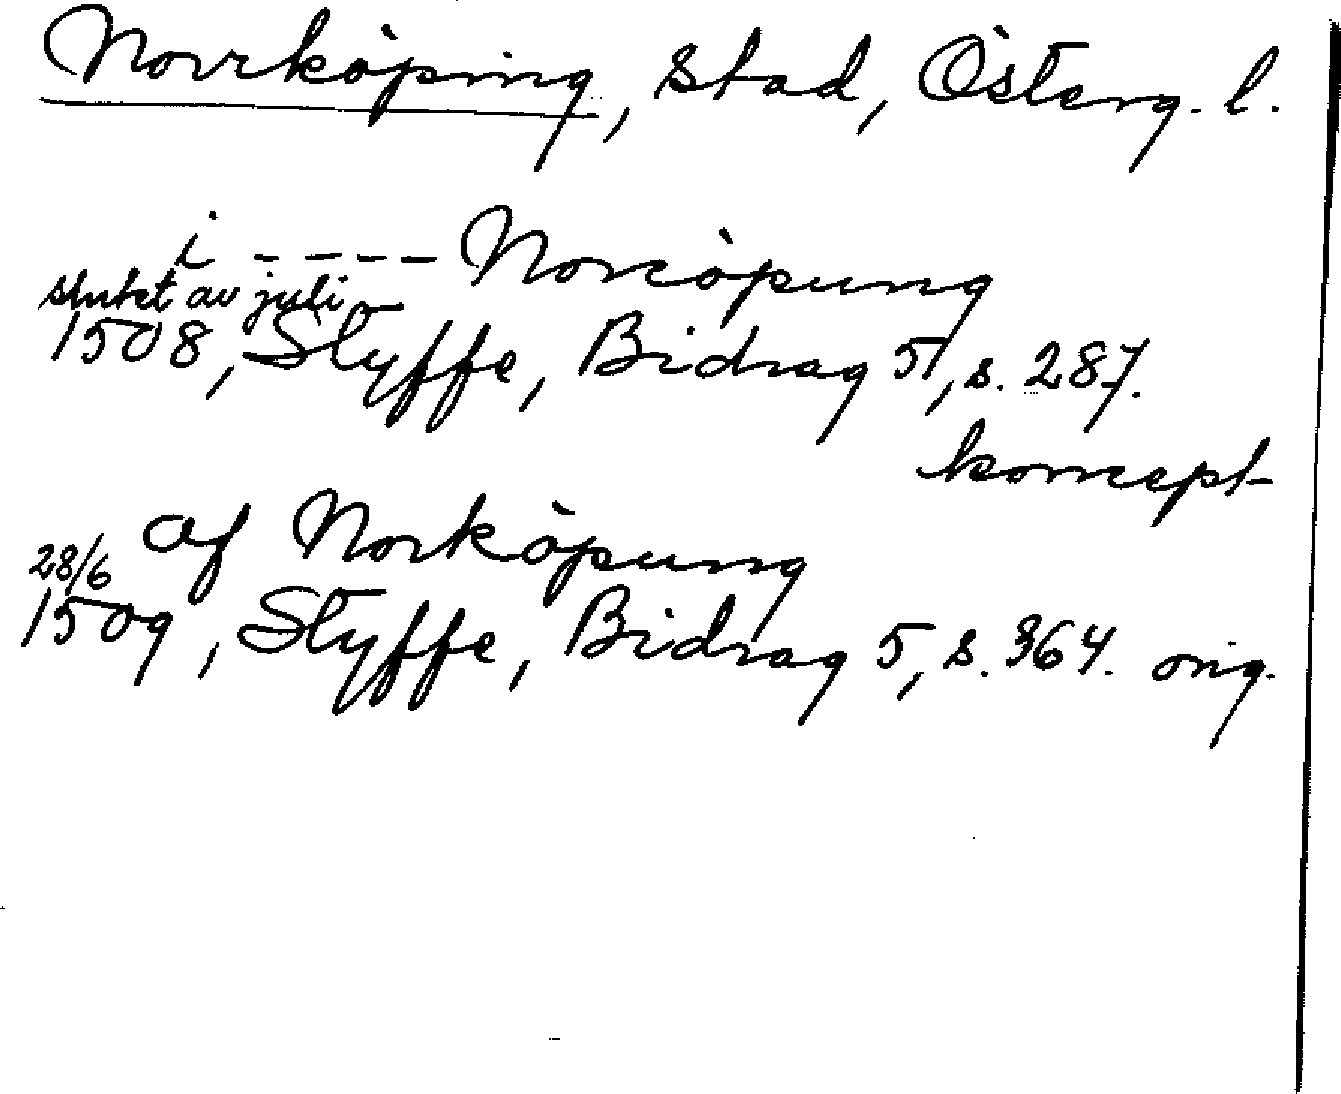 Norrköping, stad, Österg. l.
i ----- Norcöpung
slutet av juli
1508, Styffe, Bidrag 5, s. 287.
koncept
af Norköpung
28/6
1509, Styffe, Bidrag 5, s. 364. orig.